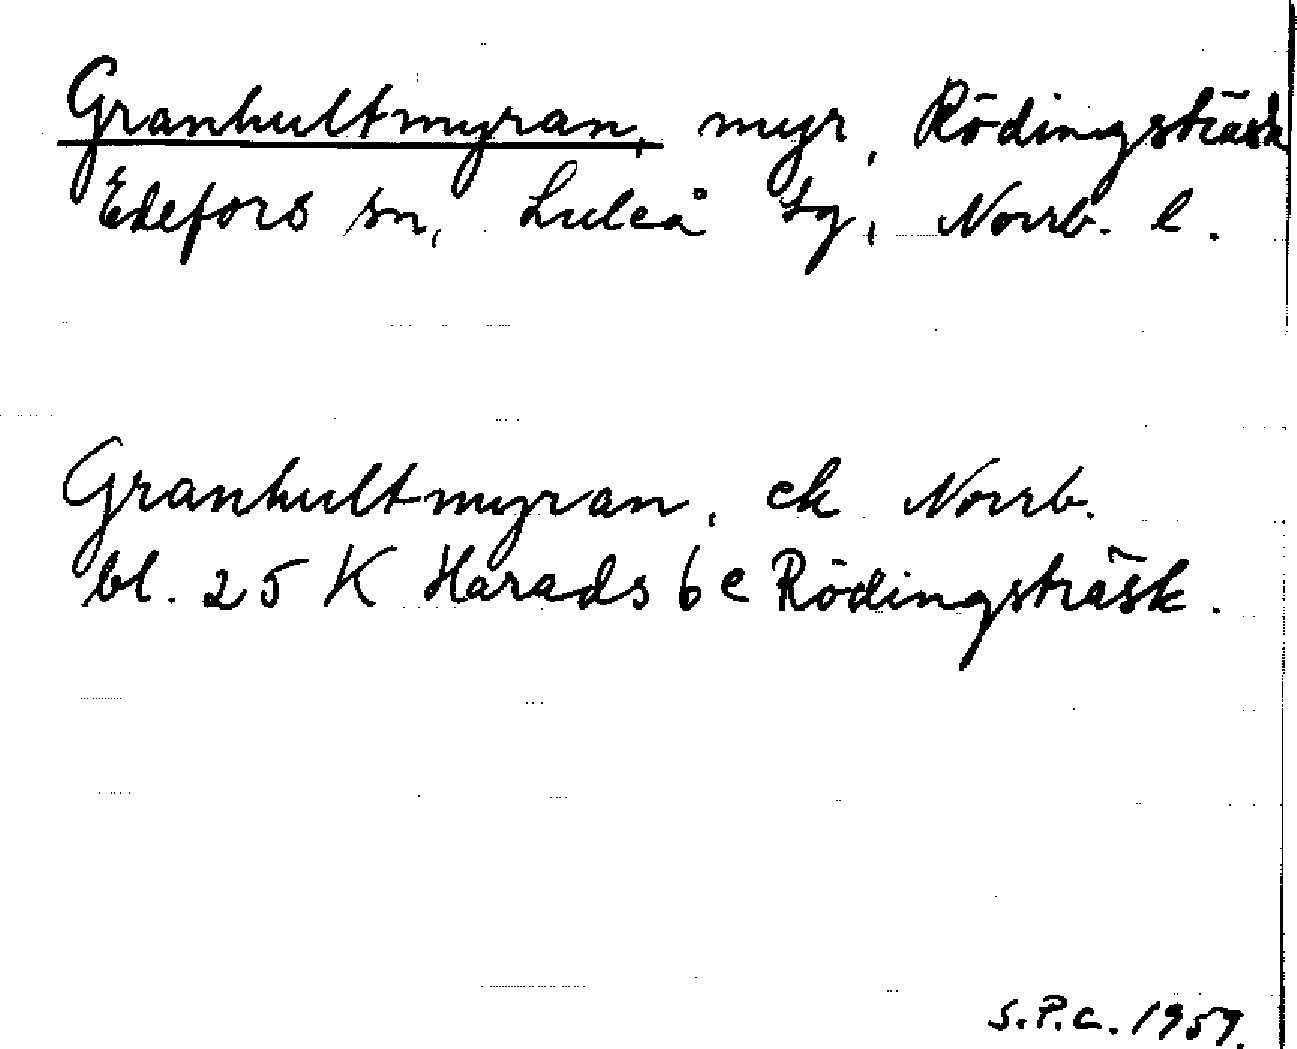 Granhultmyran, myr, Rödingsträsk
Edefors sn, Luleå tg, Norrb. l.
Granhultmyran, ek Norrb.
bl. 25 K Harads 6 e Rödingsträsk.
S.P.C. 1959.